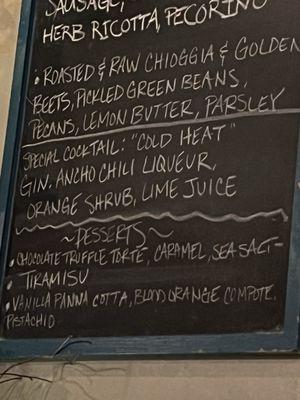 SAUSAGE,
HERB RICOTTA, PECORINO
• ROASTED & RAW CHIOGGIA & GOLDEN
BEETS, PICKLED GREEN BEANS,
PECANS, LEMON BUTTER, PARSLEY
SPECIAL COCKTAIL: "COLD HEAT"
GIN, ANCHO CHILI LIQUEUR,
ORANGE SHRUB, LIME JUICE
~DESSERTS~
• CHOCOLATE TRUFFLE TORTE, CARAMEL, SEA SALT
• TIRAMISU
• VANILLA PANNA COTTA, BLOOD ORANGE COMPOTE,
PISTACHIO